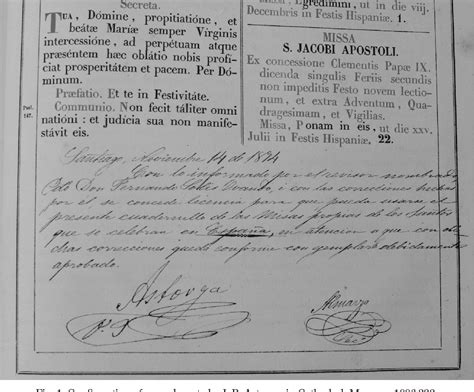 Secreta.
Tua, Dómine, propitiatióne, et
beátæ Mariæ semper Vírginis
intercessióne, ad perpétuam atque
præséntem hæc oblátio nobis profi-
ciat prosperitátem et pacem. Per Dó-
minum.
Præfatio. Et te in Festivitáte.
Psal. 147.
Communio. Non fecit táliter omni
natióni : et judícia sua non manife-
stávit eis.
Egredimini, ut in die viij.
Decembris in Festis Hispaniæ, 1.
MISSA
S. JACOBI APOSTOLI.
Ex concessione Clementis Papæ IX.
dicenda singulis Feriis secundis
non impeditis Festo novem lectio-
num, et extra Adventum, Qua-
dragesimam, et Vigilias.
Missa, Ponam in eis, ut die xxv.
Julii in Festis Hispaniæ, 22.
Santiago, Noviembre 14 de 1874
Con lo informado por el revisor nombrado
Don Fernando i con las correcciones hechas
por él se concede licencia para que pueda usarse el
presente cuadernillo de las Misas propias de los Santos
que se celebran en España, en atencion a que con
dichas correcciones queda conforme con ejemplares debidamente
aprobado.
Astorga
V. G.
Almarza